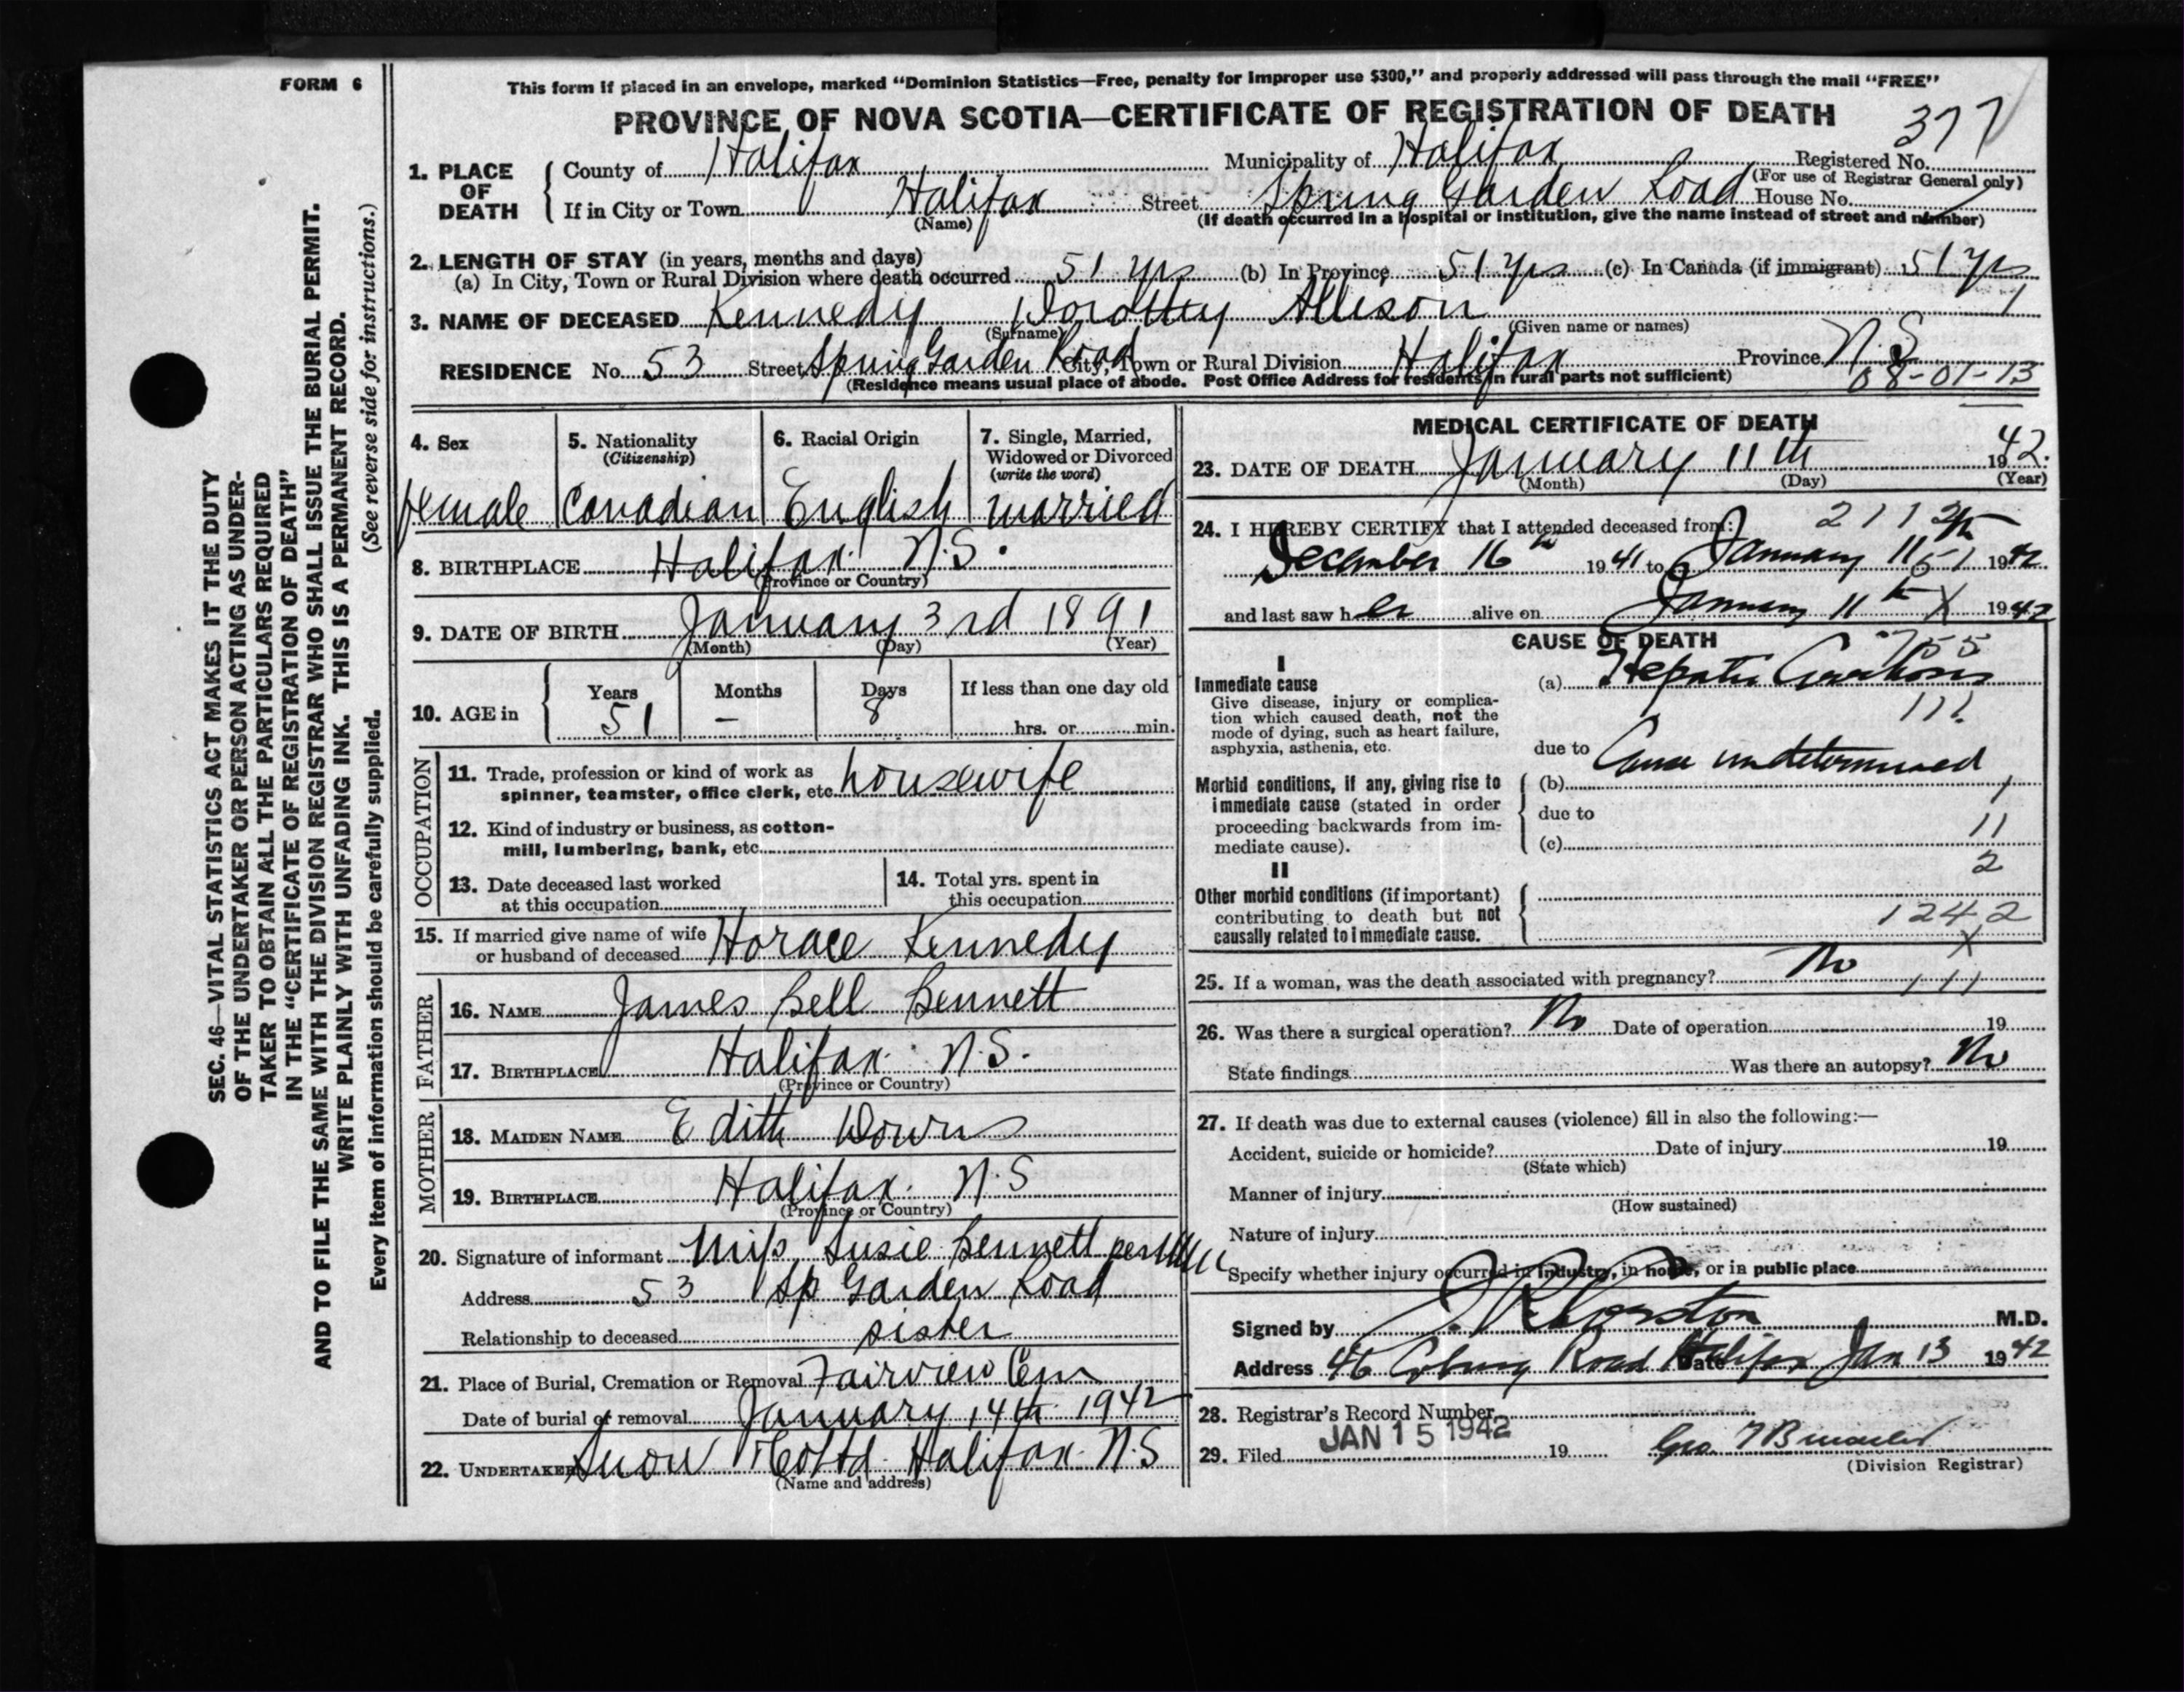 FORM 6
This form if placed in an envelope, marked “Dominion Statistics—Free, penalty for improper use $300,” and properly addressed will pass through the mail “FREE”
PROVINCE OF NOVA SCOTIA—CERTIFICATE OF REGISTRATION OF DEATH
377
1. PLACE OF DEATH
County of Halifax Municipality of Halifax Registered No.
(For use of Registrar General only)
If in City or Town Halifax Street Spring Garden Road House No.
(Name) (If death occurred in a hospital or institution, give the name instead of street and number)
2. LENGTH OF STAY (in years, months and days)
(a) In City, Town or Rural Division where death occurred 51 yrs (b) In Province 51 yrs (c) In Canada (if immigrant) 51 yrs
1
3. NAME OF DECEASED Kennedy Dorothy Allison
(Surname) (Given name or names)
RESIDENCE No. 53 Street Spring Garden Road City, Town or Rural Division Halifax Province N.S
(Residence means usual place of abode. Post Office Address for residents in rural parts not sufficient)
08-01-13
SEC. 46—VITAL STATISTICS ACT MAKES IT THE DUTY
OF THE UNDERTAKER OR PERSON ACTING AS UNDER-
TAKER TO OBTAIN ALL THE PARTICULARS REQUIRED
IN THE “CERTIFICATE OF REGISTRATION OF DEATH”
AND TO FILE THE SAME WITH THE DIVISION REGISTRAR WHO SHALL ISSUE THE BURIAL PERMIT.
WRITE PLAINLY WITH UNFADING INK. THIS IS A PERMANENT RECORD.
Every item of information should be carefully supplied. (See reverse side for instructions.)
4. Sex
female
5. Nationality
(Citizenship)
Canadian
6. Racial Origin
English
7. Single, Married,
Widowed or Divorced
(write the word)
married
8. BIRTHPLACE Halifax N.S.
(Province or Country)
9. DATE OF BIRTH January 3rd 1891
(Month) (Day) (Year)
10. AGE in
Years Months Days If less than one day old
51 — 8 hrs. or min.
OCCUPATION
11. Trade, profession or kind of work as
spinner, teamster, office clerk, etc. housewife
12. Kind of industry or business, as cotton-
mill, lumbering, bank, etc.
13. Date deceased last worked
at this occupation
14. Total yrs. spent in
this occupation
15. If married give name of wife
or husband of deceased Horace Kennedy
FATHER
16. NAME James Bell Bennett
17. BIRTHPLACE Halifax N.S.
(Province or Country)
MOTHER
18. MAIDEN NAME Edith Downs
19. BIRTHPLACE Halifax N.S
(Province or Country)
20. Signature of informant Miss Susie Bennett per
Address 53 Sp Garden Road
Relationship to deceased sister
21. Place of Burial, Cremation or Removal Fairview Cem
Date of burial or removal January 14th 1942
22. UNDERTAKER Snow & Co Ltd. Halifax N.S
(Name and address)
MEDICAL CERTIFICATE OF DEATH
23. DATE OF DEATH January 11th 1942.
(Month) (Day) (Year)
24. I HEREBY CERTIFY that I attended deceased from:
December 16th 1941 to January 11 1942.
and last saw her alive on January 11th X 1942
CAUSE OF DEATH
755
I
Immediate cause
Give disease, injury or complica-
tion which caused death, not the
mode of dying, such as heart failure,
asphyxia, asthenia, etc.
(a) Hepatic Cirrhosis
111
due to Cause undetermined
Morbid conditions, if any, giving rise to
immediate cause (stated in order
proceeding backwards from im-
mediate cause).
(b) 1
due to
11
(c)
2
II
Other morbid conditions (if important)
contributing to death but not
causally related to immediate cause.
1242
X
25. If a woman, was the death associated with pregnancy? No 111
26. Was there a surgical operation? No Date of operation 19
State findings Was there an autopsy? No
27. If death was due to external causes (violence) fill in also the following:—
Accident, suicide or homicide? Date of injury 19
(State which)
Manner of injury
(How sustained)
Nature of injury
Specify whether injury occurred in industry, in home, or in public place
Signed by M.D.
Address 46 Coburg Road Halifax Date Jan 13 1942
28. Registrar's Record Number
29. Filed JAN 15 1942 19
(Division Registrar)